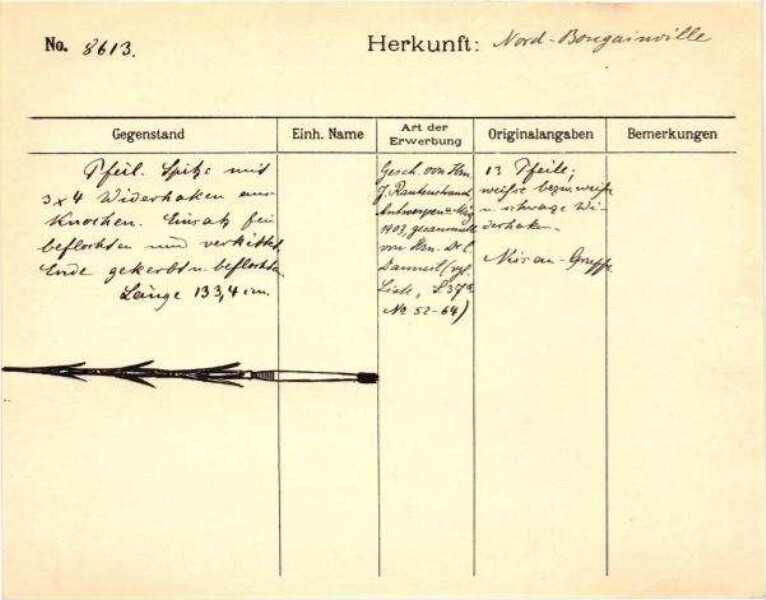 No. 8613.
Herkunft: Nord-Bougainville
Gegenstand
Einh. Name
Art der Erwerbung
Originalangaben
Bemerkungen
Pfeil. Spitze mit
3 x 4 Widerhaken aus
Knochen. Einsatz fein
beflochten und verkittet
Ende gekerbt u. beflochten
Länge 133,4 cm.
Gesch. von Hrn.
J. Rautenstrauch,
Antwerpen
1903, gesammelt
von Hrn. Dr.
(vgl.
Liste, S. 37
No 52-64)
13 Pfeile;
weiße bezw. weiße
u. schwarze Wi-
derhaken.